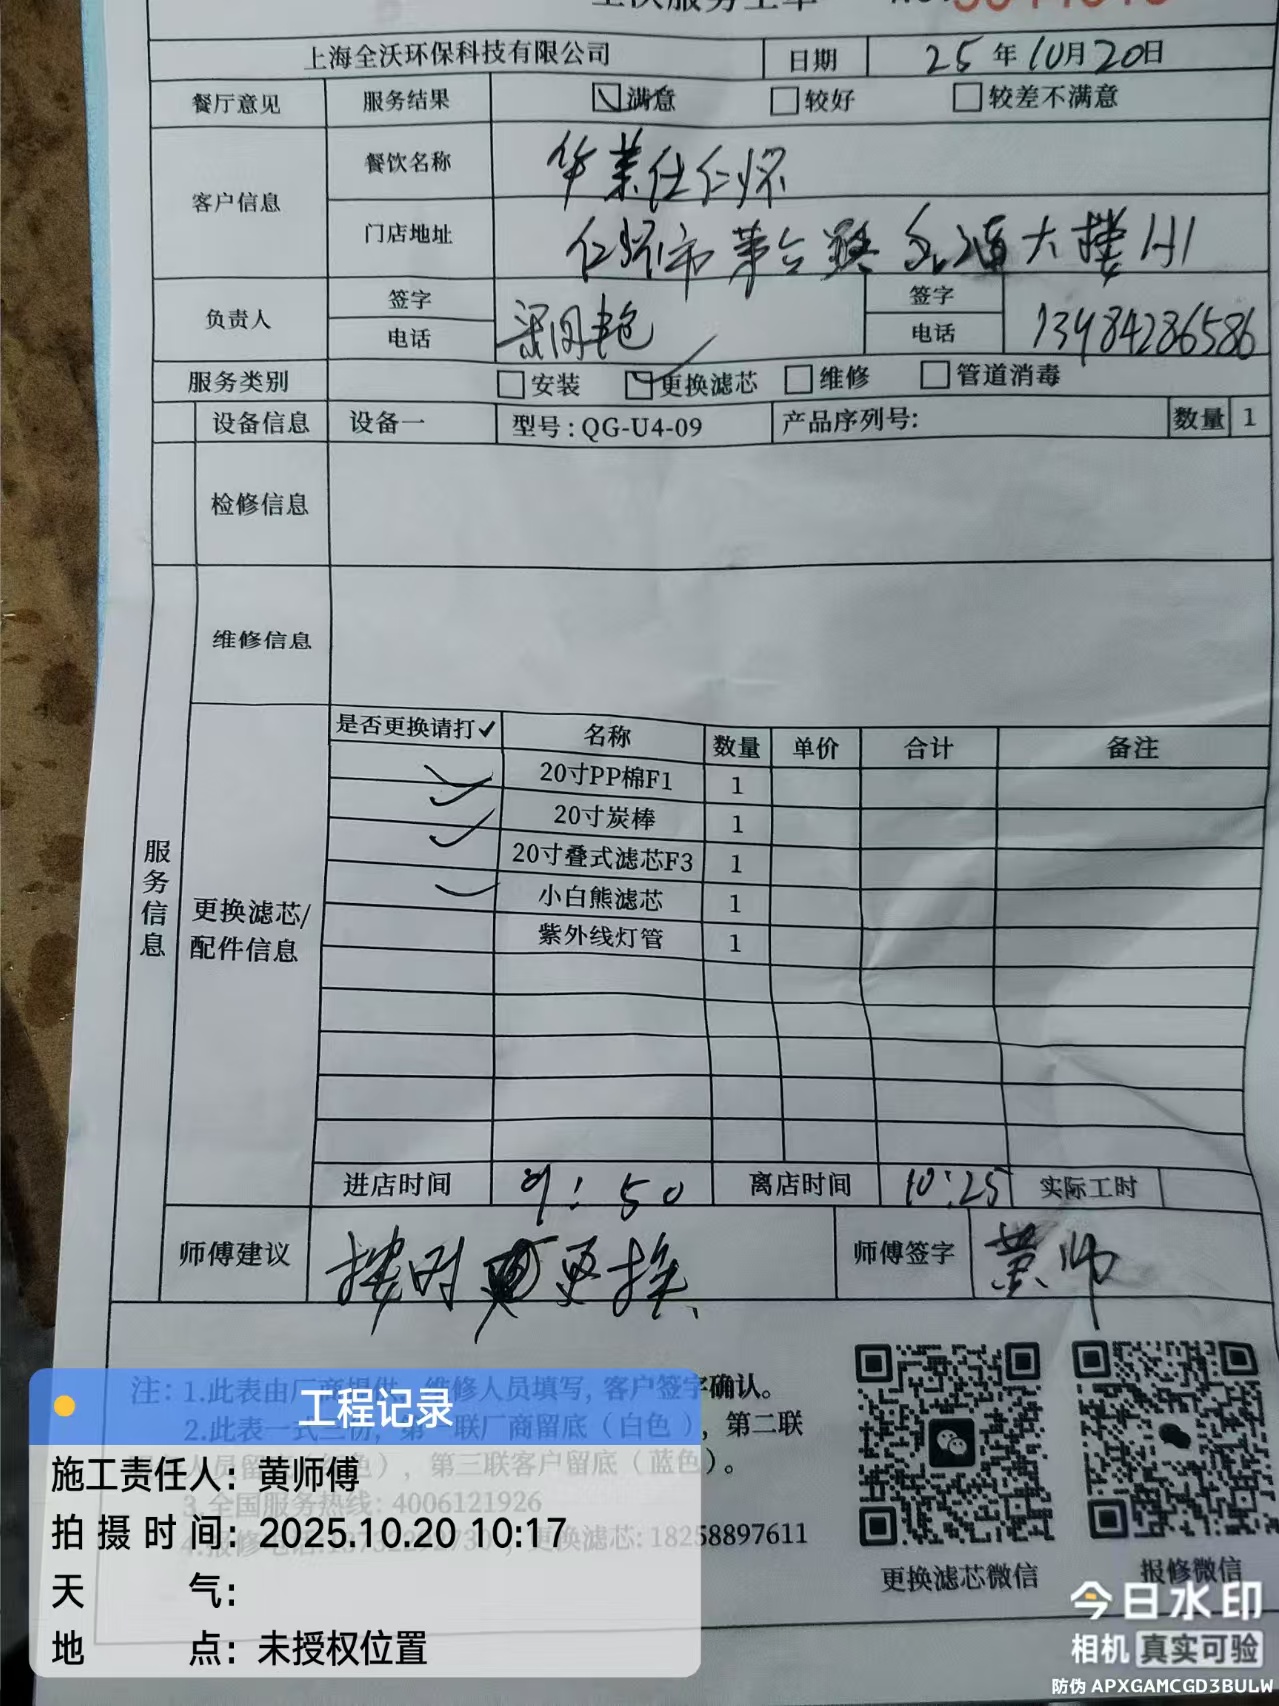 全沃服务工单
上海全沃环保科技有限公司 日期 25年10月20日
餐厅意见 服务结果 满意 较好 较差不满意
客户信息 餐饮名称 华莱仕仁怀
门店地址 仁怀市茅台路 大楼1-1
负责人 签字 签字
电话 电话 13984286586
服务类别 安装 更换滤芯 维修 管道消毒
设备信息 设备一 型号:QG-U4-09 产品序列号: 数量 1
检修信息
维修信息
服务信息
更换滤芯/
配件信息
是否更换请打✓ 名称 数量 单价 合计 备注
✓ 20寸PP棉F1 1
✓ 20寸炭棒 1
✓ 20寸叠式滤芯F3 1
✓ 小白熊滤芯 1
紫外线灯管 1
进店时间 9:50 离店时间 10:25 实际工时
师傅建议 按时更换 师傅签字 黄师
注: 1.此表由厂商提供,维修人员填写,客户签字确认。
2.此表一式三份,第一联厂商留底(白色),第二联
人员留底 色),第三联客户留底(蓝色)。
3.全国服务热线: 4006121926
4.报修电话: 更换滤芯: 18258897611
更换滤芯微信 报修微信
工程记录
施工责任人:黄师傅
拍摄时间:2025.10.20 10:17
天气:
地点:未授权位置
今日水印
相机 真实可验
防伪 APXGAMCGD3BULW